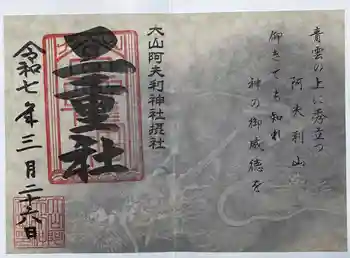 青雲の上に聳立つ
阿夫利山
仰きても知れ
神の御威徳を
大山阿夫利神社摂社
重社
令和七年三月二十六日